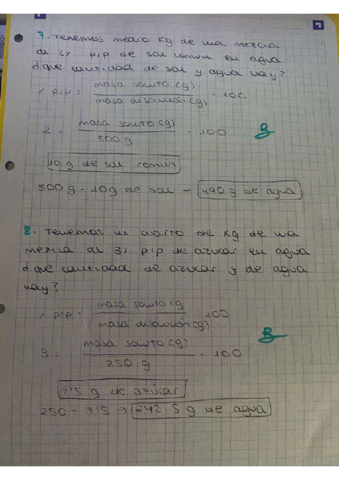 7. Tenemos medio kg de una mezcla
al 2% p/p de sal común en agua
¿qué cantidad de sal y agua hay?
% p/p = masa soluto (g) / masa disolución (g) · 100
2 = masa soluto (g) / 500 g · 100 B
10 g de sal común
500 g - 10 g de sal = 490 g de agua
8. Tenemos un cuarto de kg de una
mezcla al 3% p/p de azúcar en agua
¿qué cantidad de azúcar y de agua
hay?
% p/p = masa soluto (g / masa disolución (g) · 100
3 = masa soluto (g) / 250 g · 100 B
7'5 g de azúcar
250 - 7'5 → 242'5 g de agua